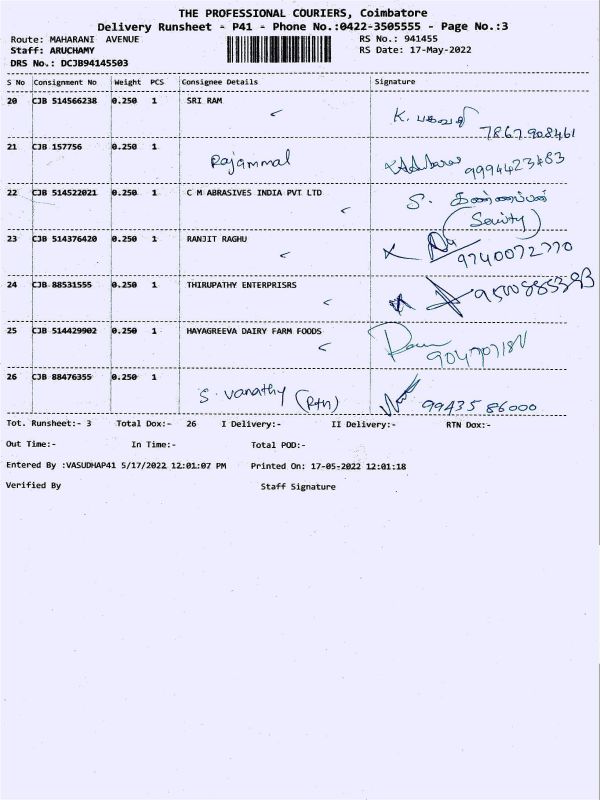 THE PROFESSIONAL COURIERS, Coimbatore
Delivery Runsheet - P41 - Phone No.:0422-3505555 - Page No.:3
Route: MAHARANI AVENUE RS No.: 941455
Staff: ARUCHAMY RS Date: 17-May-2022
DRS No.: DCJB94145503
S No Consignment No Weight PCS Consignee Details Signature
20 CJB 514566238 0.250 1 SRI RAM K.
7867908461
21 CJB 157756 0.250 1 Rajammal
9994423483
22 CJB 514522021 0.250 1 C M ABRASIVES INDIA PVT LTD S.
23 CJB 514376420 0.250 1 RANJIT RAGHU
9740072770
24 CJB 88531555 0.250 1 THIRUPATHY ENTERPRISRS
25 CJB 514429902 0.250 1 HAYAGREEVA DAIRY FARM FOODS
26 CJB 88476355 0.250 1 S. Vanathy (Rtn)
9943586000
Tot. Runsheet:- 3 Total Dox:- 26 I Delivery:- II Delivery:- RTN Dox:-
Out Time:- In Time:- Total POD:-
Entered By :VASUDHAP41 5/17/2022 12:01:07 PM Printed On: 17-05-2022 12:01:18
Verified By Staff Signature